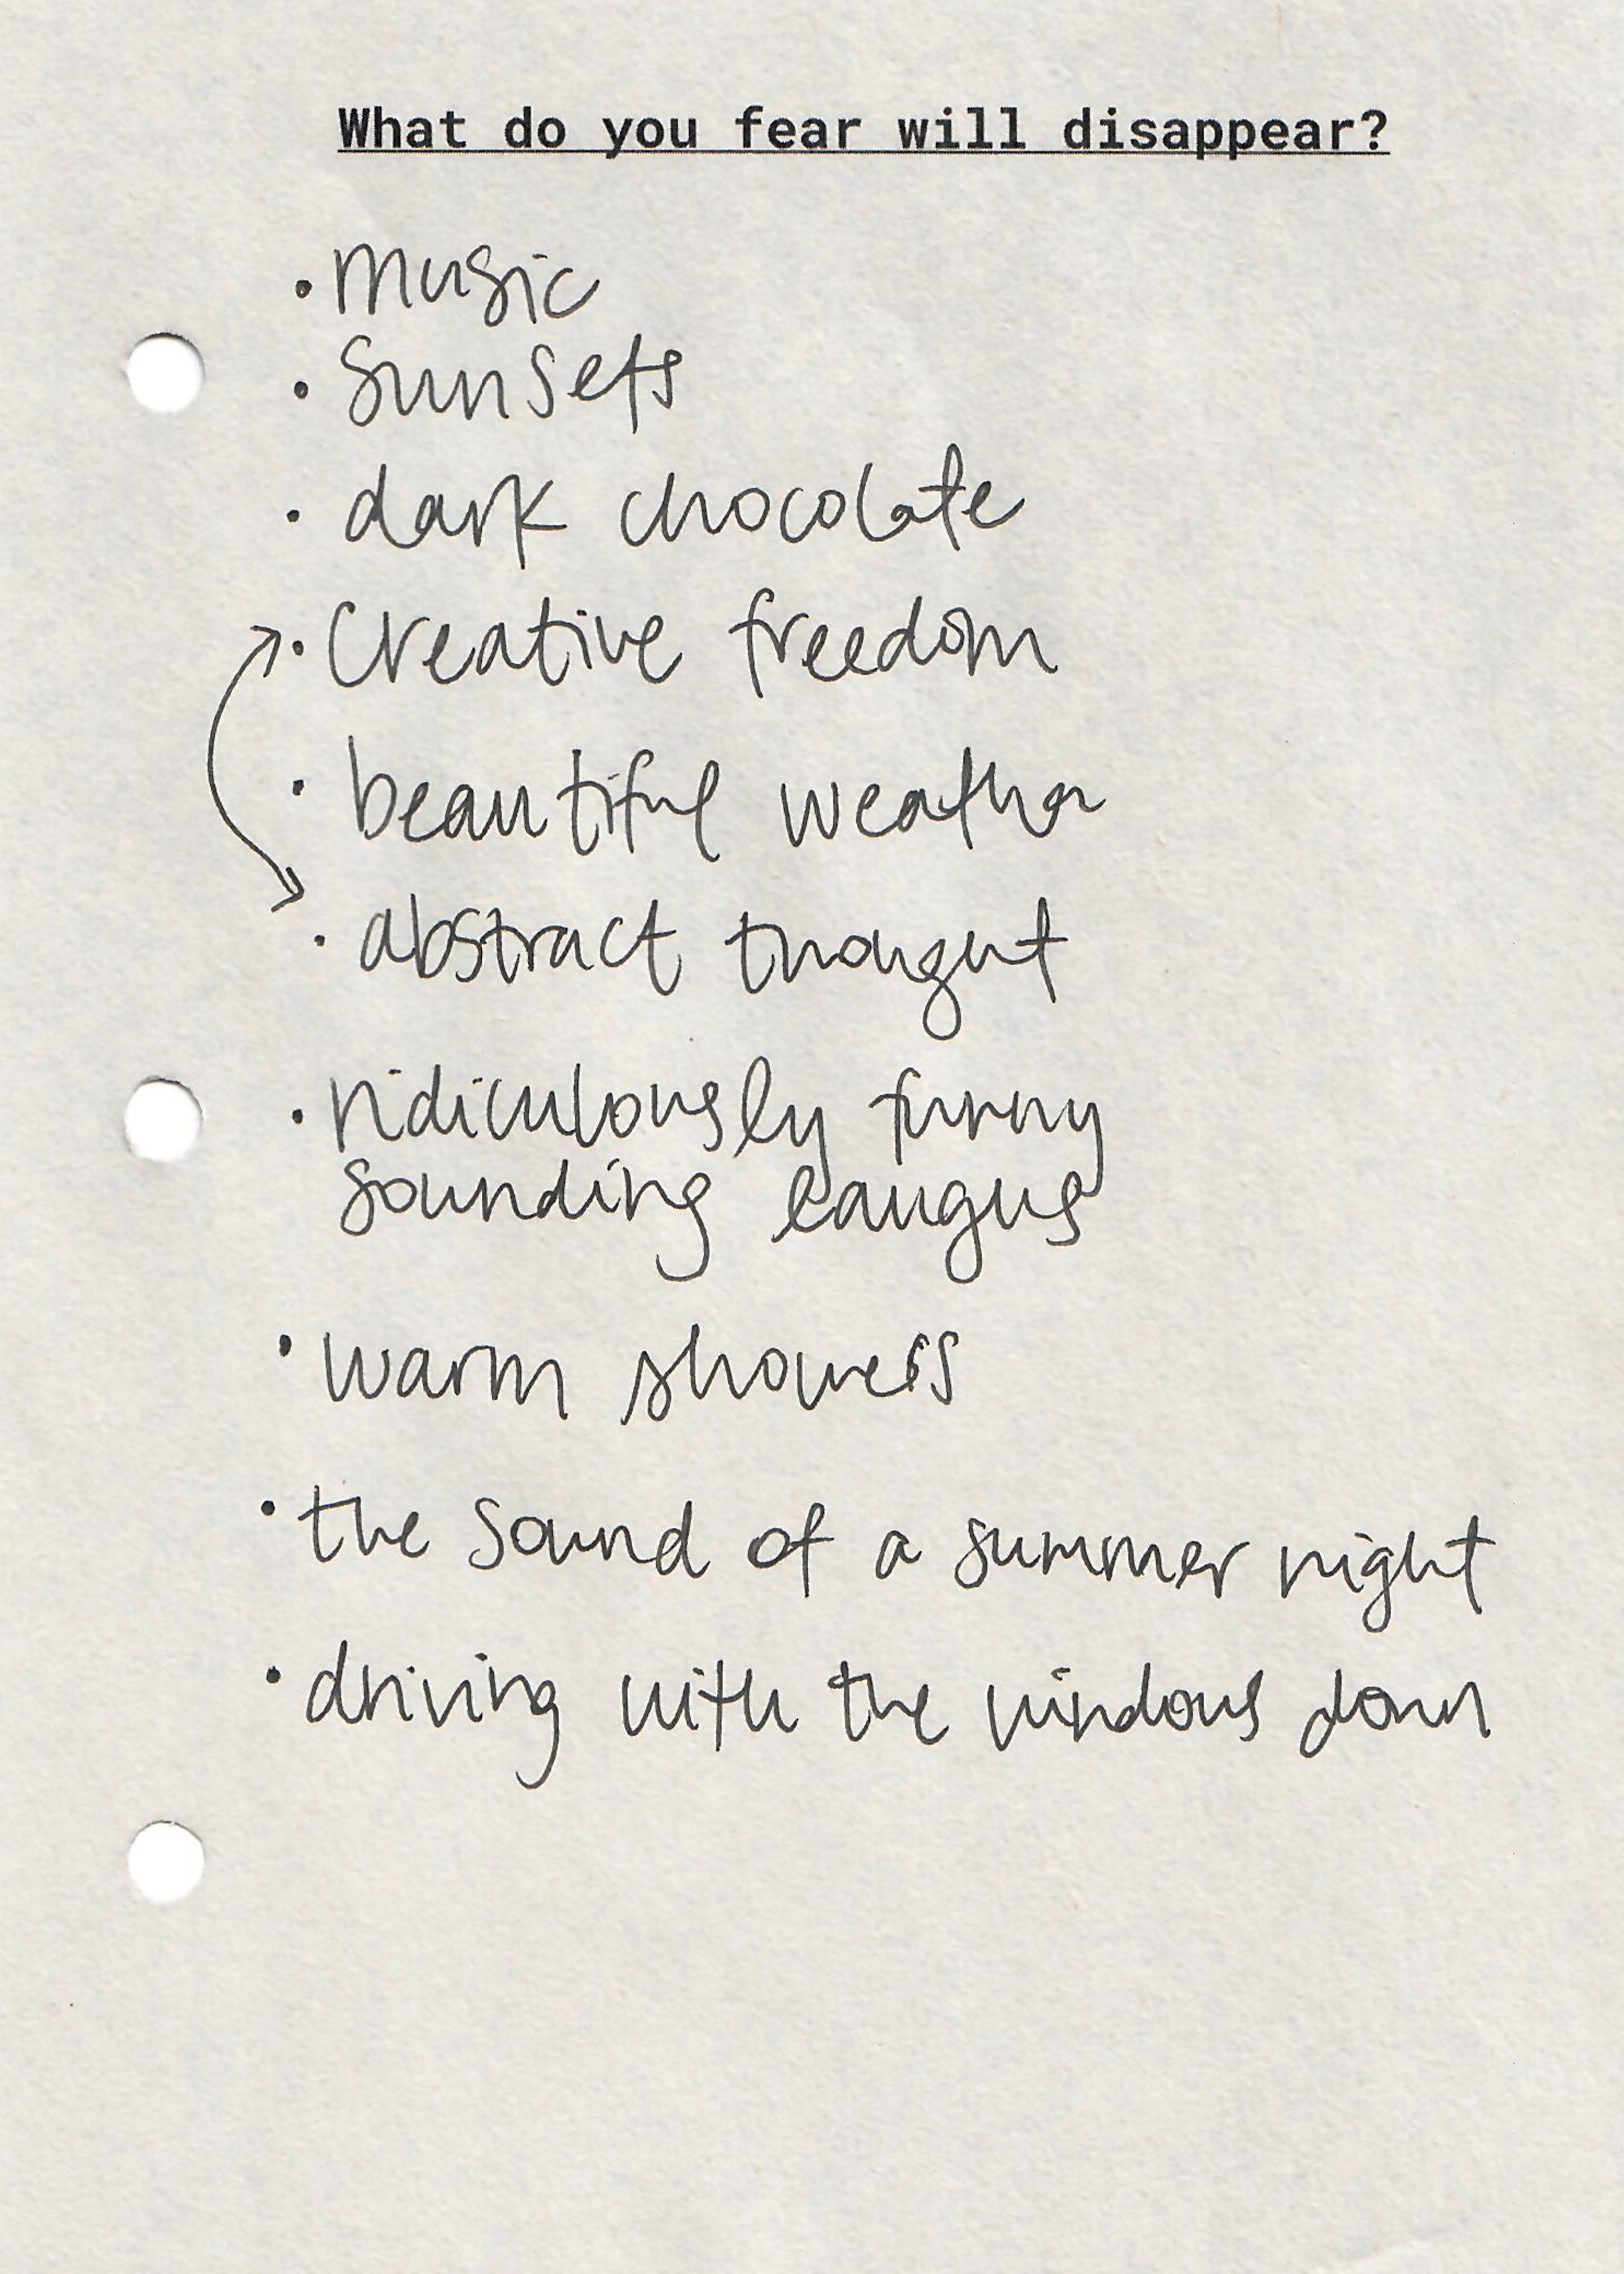 What do you fear will disappear?
• music
• sunsets
• dark chocolate
• creative freedom
• beautiful weather
• abstract thought
• ridiculously funny
sounding laughs
• warm showers
• the sound of a summer night
• driving with the windows down